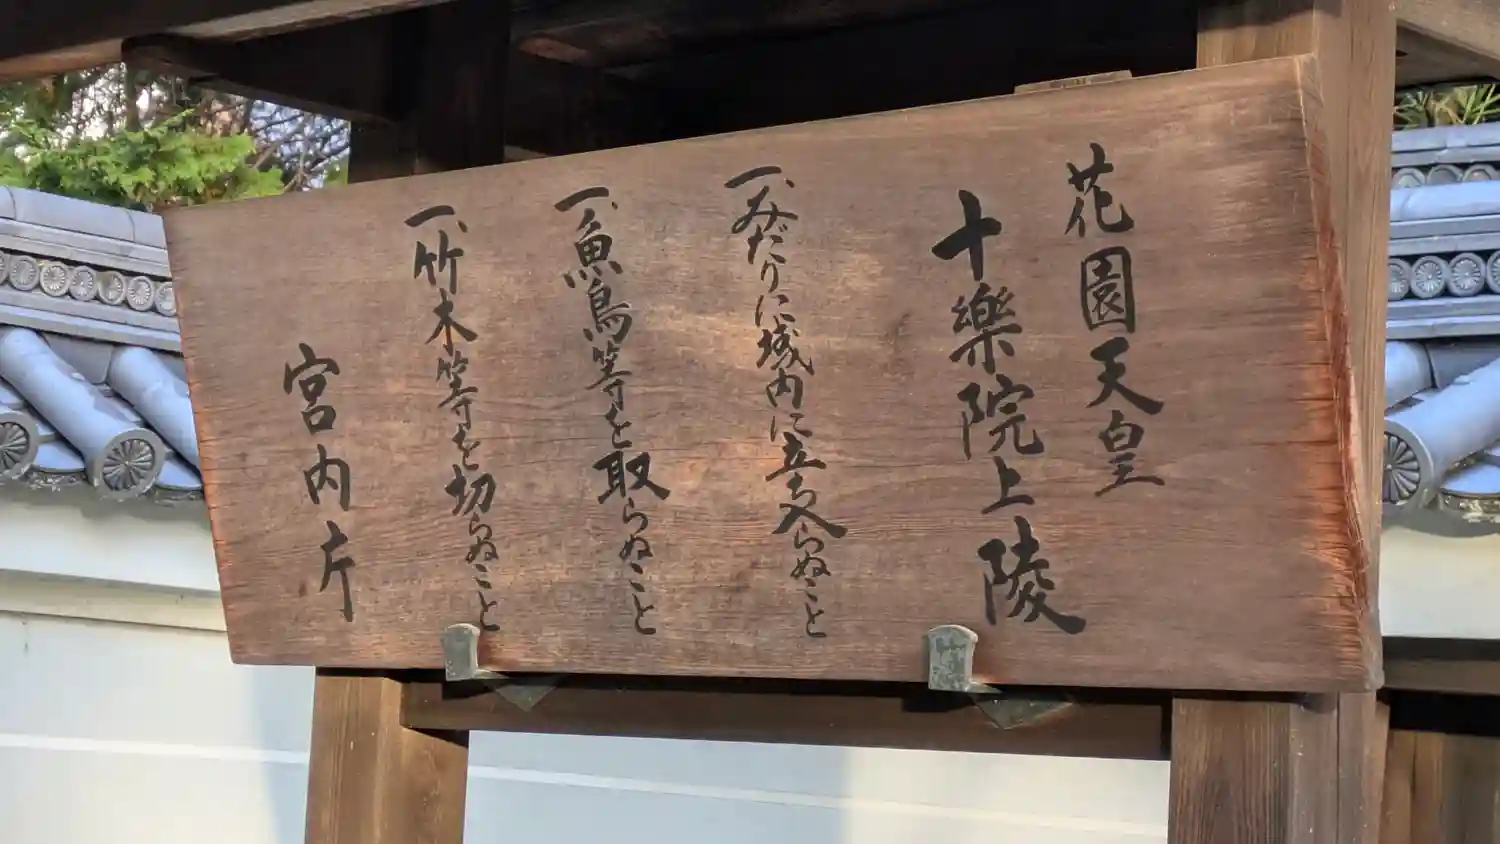 花園天皇
十樂院上陵
一、みだりに域内に立ち入らぬこと
一、魚鳥等を取らぬこと
一、竹木等を切らぬこと
宮内庁